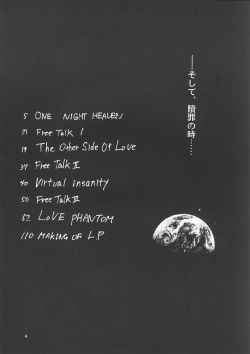 ——そして、贖罪の時……
5 ONE NIGHT HEAVEN
17 Free Talk I
19 The Other Side Of Love
37 Free Talk II
40 Virtual insanity
50 Free Talk III
52 LOVE PHANTOM
110 MAKING OF L.P